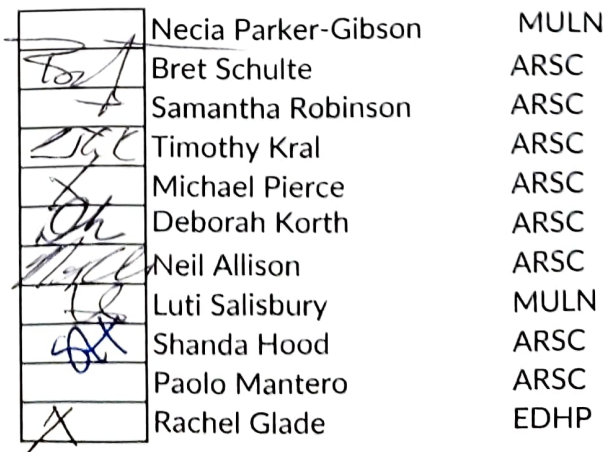 Necia Parker-Gibson MULN
Bret Schulte ARSC
Samantha Robinson ARSC
Timothy Kral ARSC
Michael Pierce ARSC
Deborah Korth ARSC
Neil Allison ARSC
Luti Salisbury MULN
Shanda Hood ARSC
Paolo Mantero ARSC
Rachel Glade EDHP